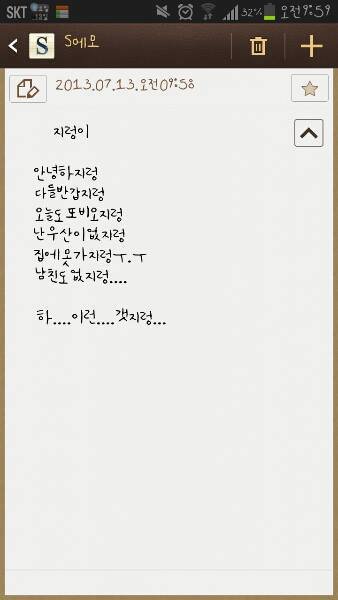 SKT 32% 오전9:59
S메모
2013.07.13.오전09:58
지렁이
안녕하지렁
다들반갑지렁
오늘도 또비오지렁
난우산이없지렁
집에못가지렁ㅜ.ㅜ
남친도없지렁....
하....이런....갯지렁...